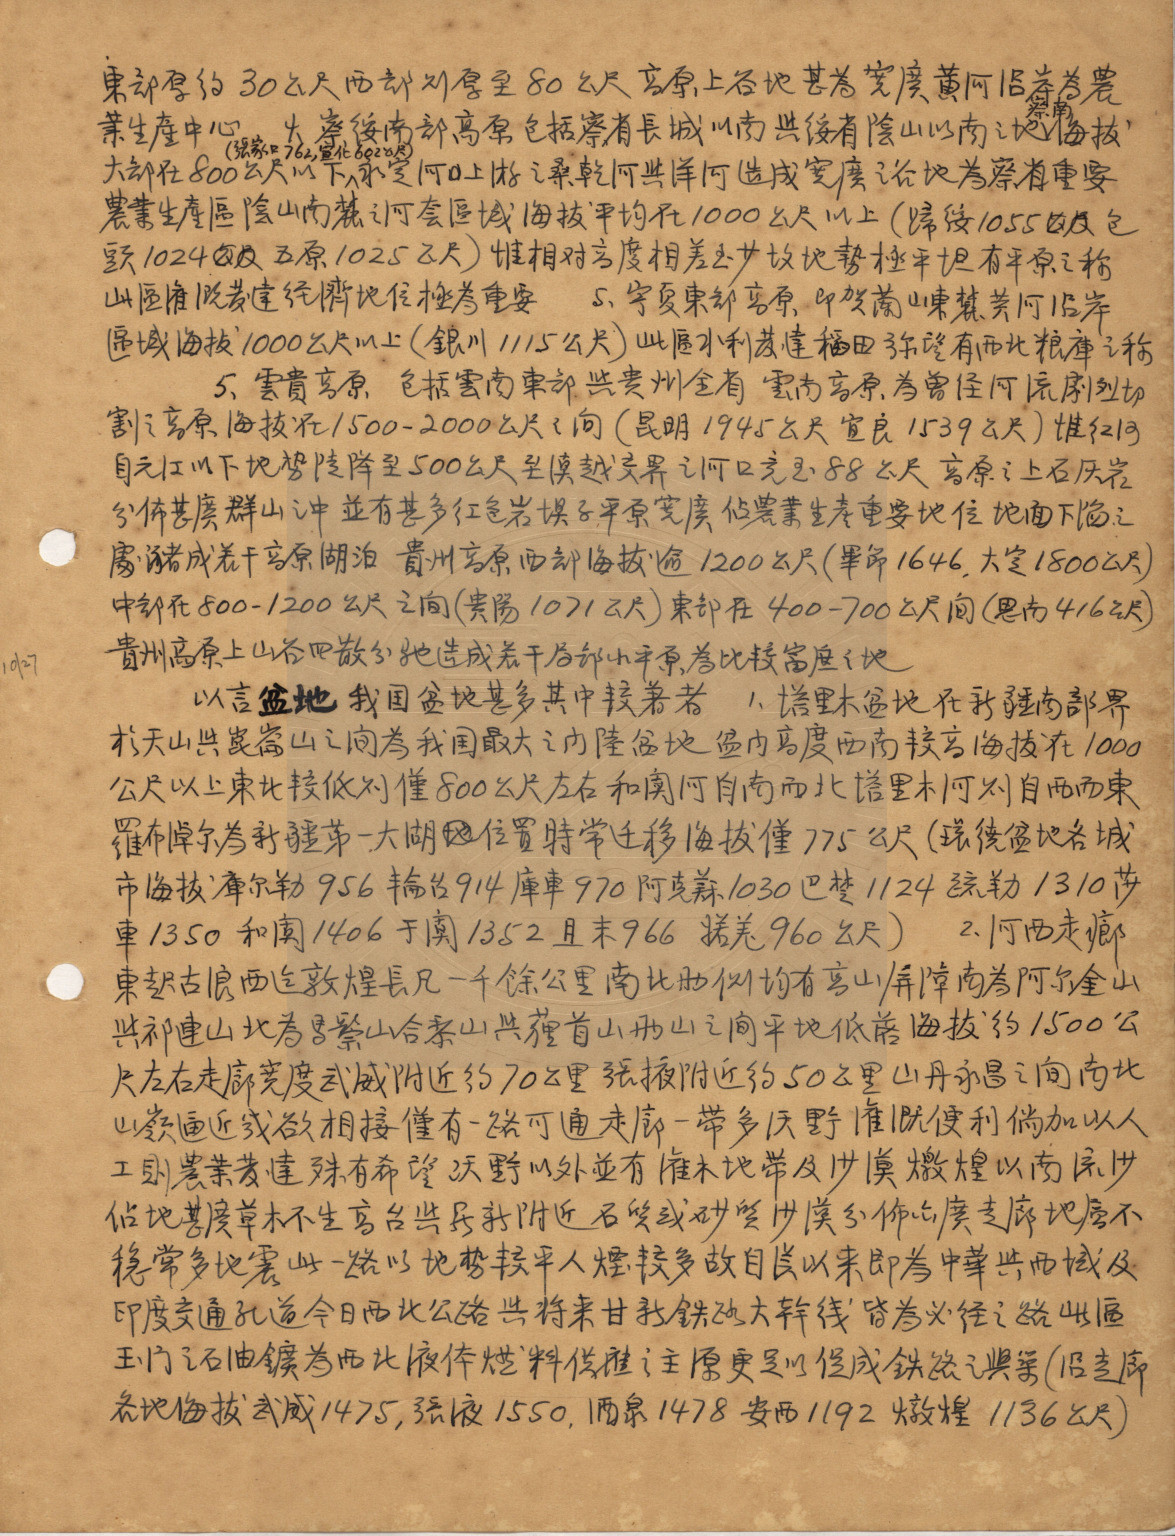 東部厚約30公尺西部則厚至80公尺 高原上谷地甚為寬廣黃河沿岸為農
業生產中心 大察綏南部高原包括察省長城以南與綏省陰山以南之地 察南海拔
大部在800公尺以下(張家口762,宣化602公尺)永定河上游之桑乾河與洋河造成寬廣之谷地為察省重要
農業生產區陰山南麓之河套區域海拔平均在1000公尺以上(歸綏1055 包
頭1024 五原1025公尺)惟相對高度相差至少故地勢極平坦有平原之稱
此區灌溉發達經濟地位極為重要 5、寧夏東部高原 即賀蘭山東麓黃河沿岸
區域海拔1000公尺以上(銀川1115公尺)此區水利發達稻田弥望有西北粮庫之称
5、雲貴高原 包括雲南東部與貴州全省 雲南高原為曾經河流劇烈切
割之高原海拔在1500-2000公尺之间(昆明1945公尺 宜良1539公尺)惟红河
自元江以下地勢陡降至500公尺至滇越交界之河口竟至88公尺 高原之上石灰岩
分佈甚廣群山之中並有甚多红色岩埧子平原寬廣佔農業生產重要地位 地面下陷之
處潴成若干高原湖泊 貴州高原西部海拔逾1200公尺(畢節1646.大定1800公尺)
中部在800-1200公尺之间(贵陽1071公尺)東部在400-700公尺间(思南416公尺)
貴州高原上山谷四散分馳造成若干局部小平原為比較富庶之地
10/27
以言盆地 我国盆地甚多其中較著者 1、塔里木盆地在新疆南部界
於天山與崑崙山之间為我国最大之内陸盆地盆内高度西南較高海拔在1000
公尺以上東北較低则僅800公尺左右和闐河自南而北塔里木河则自西而東
羅布淖尔為新疆第一大湖位置時常迁移海拔僅775公尺(環繞盆地各城
市海拔庫尔勒956輪台914庫車970阿克蘇1030巴楚1124疏勒1310莎
車1350和闐1406于闐1352且末966婼羌960公尺) 2.河西走廊
東起古浪西迄敦煌長凡一千餘公里南北两側均有高山屏障南為阿尔金山
與祁連山北為馬鬃山合黎山與龍首山两山之间平地低落海拔約1500公
尺左右走廊寬度武威附近約70公里張掖附近約50公里山丹永昌之间南北
山嶺逼近或欲相接僅有一路可通走廊一帶多沃野灌溉便利倘加以人
工則農業發達殊有希望沃野以外並有灌木地帶及沙漠燉煌以南流沙
佔地甚廣草木不生高台與 附近石質或砂質沙漠分佈亦廣走廊地層不
穩常多地震此一路以地勢較平人煙較多故自漢以来即為中華與西域及
印度交通孔道今日西北公路與将来甘新鉄路大幹线皆為必經之路此區
玉门之石油鑛為西北液体燃料供應之主源更足以促成鉄路之興築(沿走廊
各地海拔武威1475,張液1550.酒泉1478安西1192燉煌1136公尺)